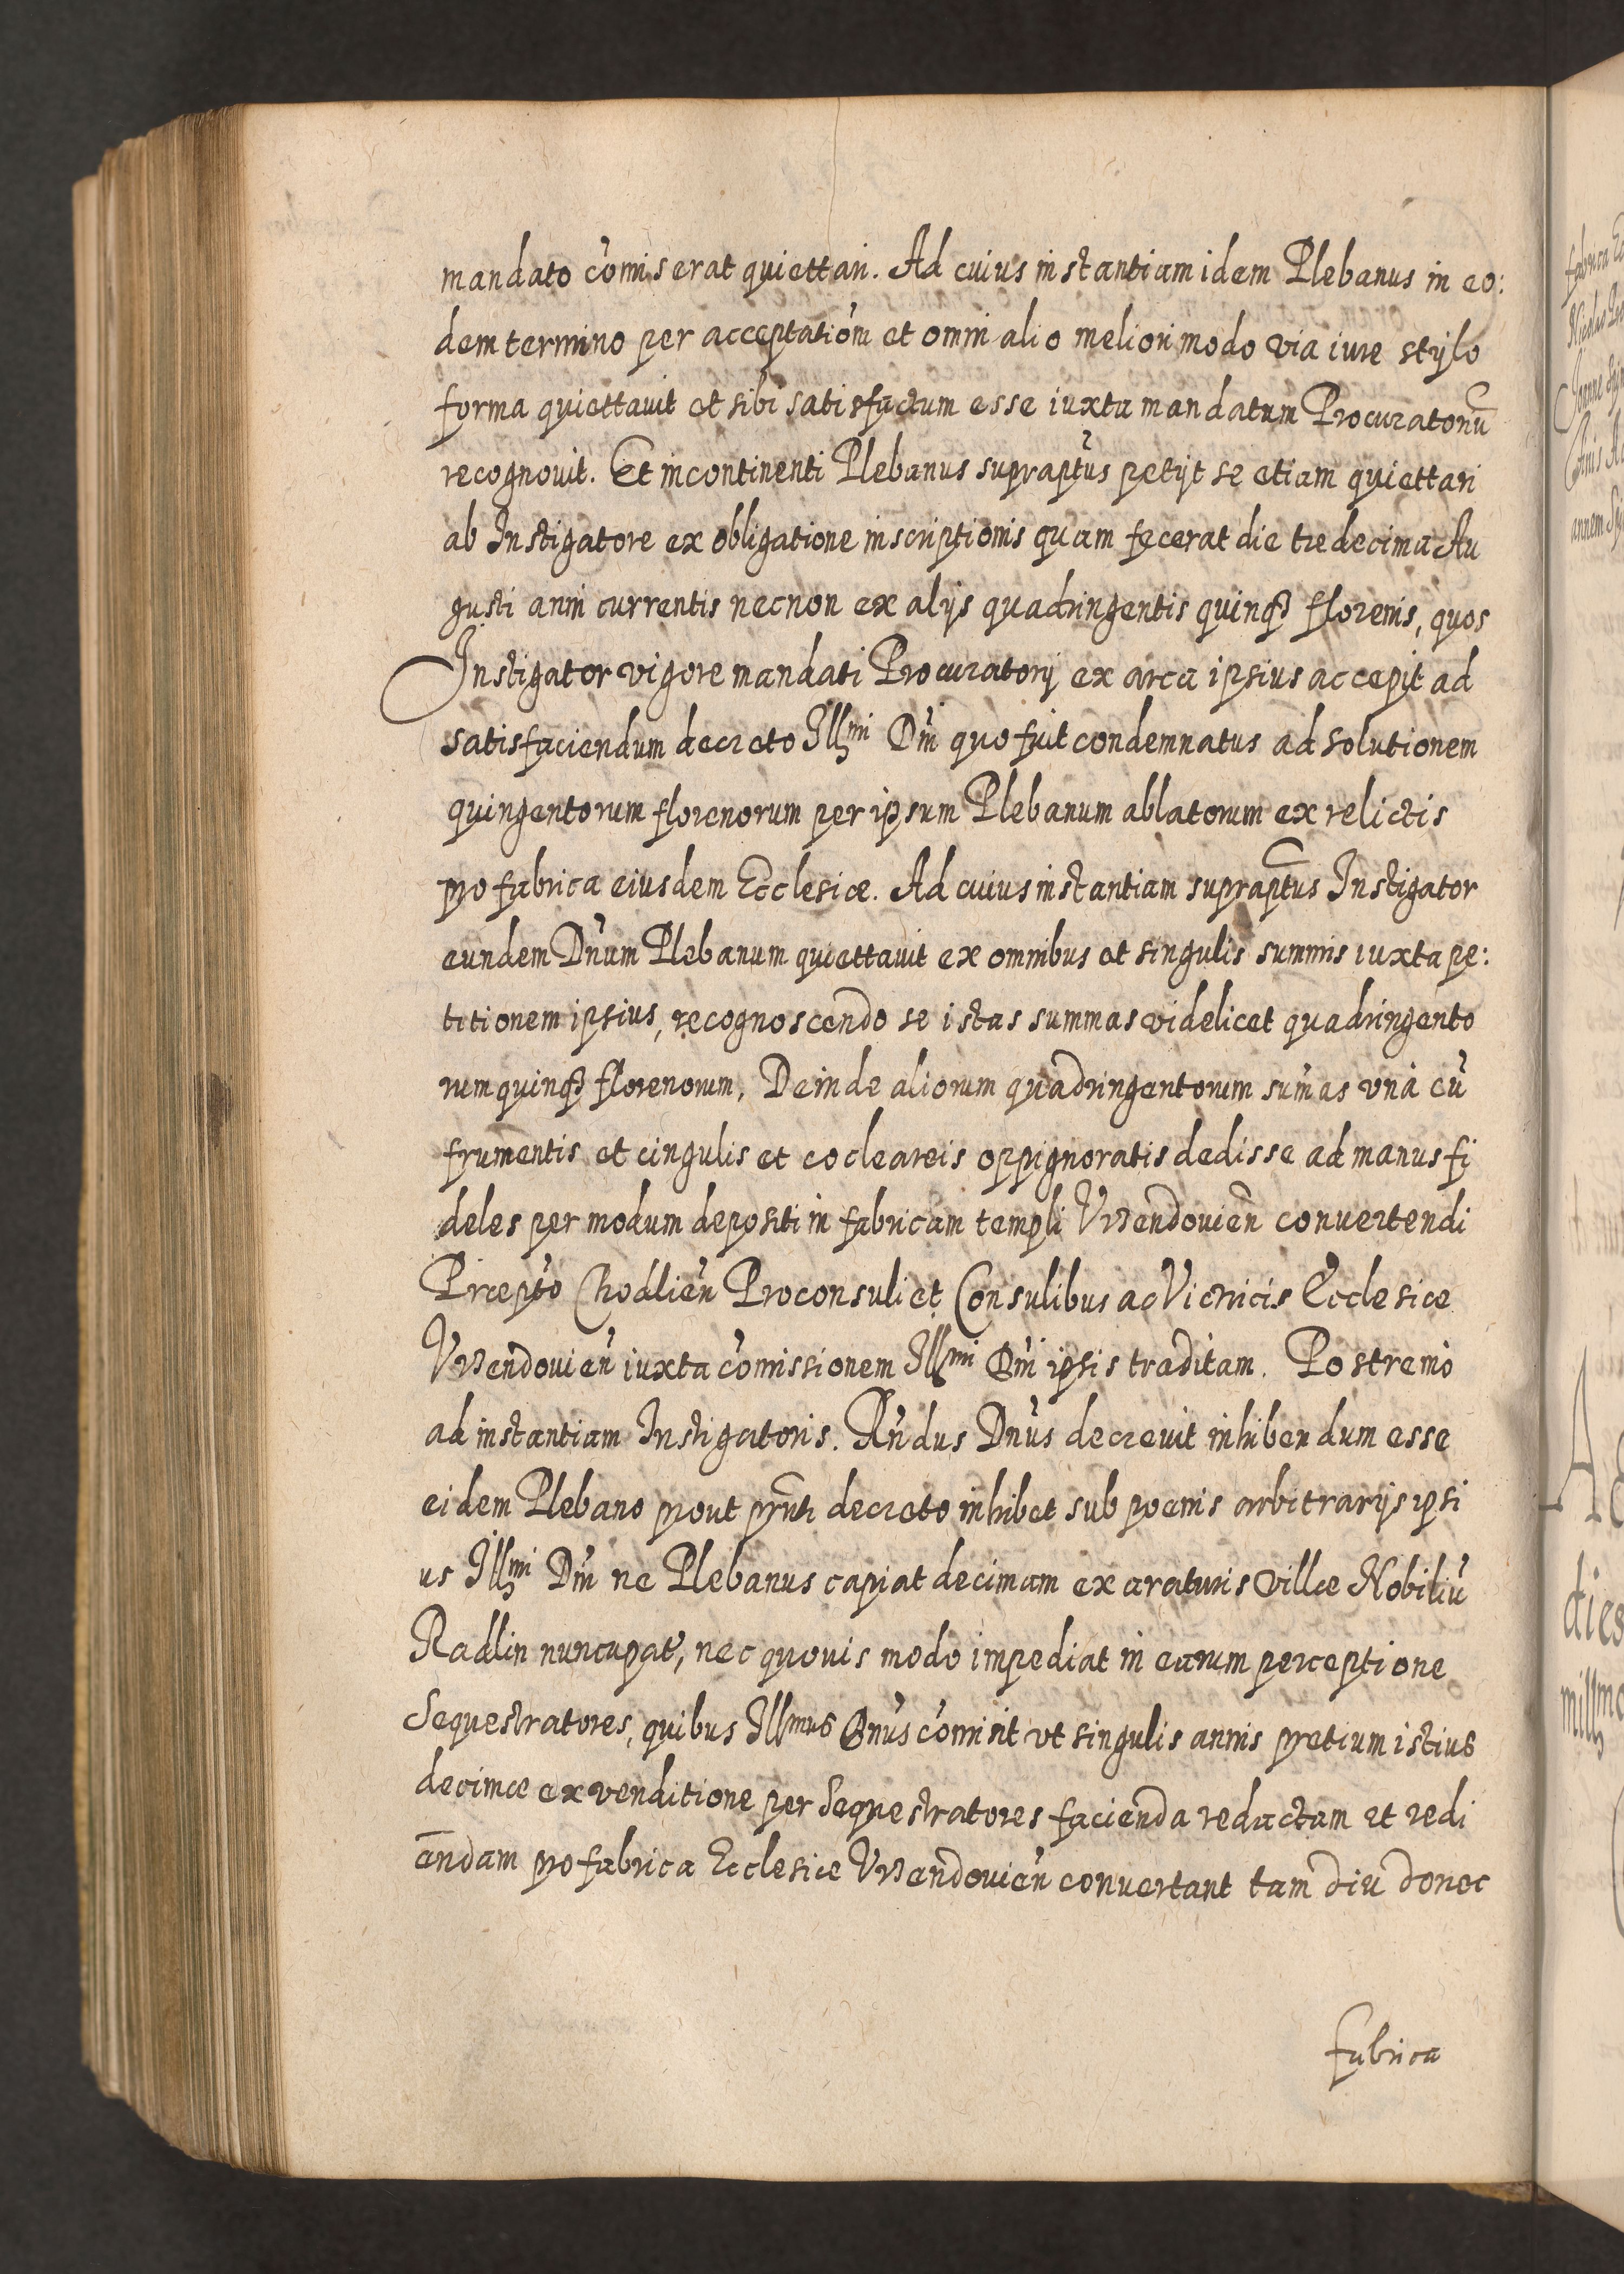 mandato com̄iserat quiettari. Ad cuius instantiam idem Plebanus in eo:
dem termino per acceptatiom̄ et omni alio meliori modo via iure stylo
forma quiettauit et sibi satisfactum esse iuxta mandatum Procuratoriū
recognouit. Et incontinenti Plebanus supraptus petijt se etiam quiettari
ab Instigatore ex obligatione inscriptionis quam fecerat die tredecima Au
gusti anni currentis necnon ex alijs quadringentis quinq3 florenis, quos
Instigator vigore mandati Procuratorij ex arca ipsius accepit ad
satisfaciendum decreto Illmi Dni quo fuit condemnatus ad solutionem
quingentorum florenorum per ipsum Plebanum ablatorum ex relictis
pro fabrica eiusdem Ecclesiæ. Ad cuius instantiam supraptus Instigator
eundem Dnum Plebanum quiettauit ex omnibus et singulis summis iuxta pe:
titionem ipsius, recognoscendo se istas summas videlicet quadringento
rum quinq3 florenorum, Deinde aliorum quadringentorum sum̄as vnà cū
frumentis et cingulis et cocleareis oppignoratis dedisse ad manus fi
deles per modum depositi in fabricam templi Vrzendouien̄ conuertendi
Præpto Chodlien̄ Proconsuli et Consulibus ac Victricis Ecclesiæ
Vrzendouien̄ iuxta com̄issionem Illmi Dni ipsis traditam. Postremò
ad instantiam Instigatoris. Rn̄dus Dnus decreuit inhibendum esse
eidem Plebano prout pn̄ti decreto inhibet sub poenis arbitrarijs ipsi
us Illmi Dni ne Plebanus capiat decimam ex araturis villæ Nobiliū
Radlin nuncupat, nec quouis modo impediat in earum perceptione
Sequestratores, quibus Illmus Dnus com̄isit vt singulis annis pretium istius
decimæ ex venditione per Sequestratores facienda redactam et redi
endam pro fabrica Ecclesiæ Vrzendouien̄ conuertant tam diu donec
fabrica